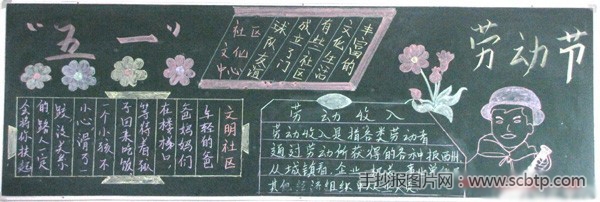 “五一”
劳动节
社区
文化
中心
丰富的
文化生活
有些社区
成立了门
球队、友谊
文明社区
年轻的爸
爸妈妈们
在楼梯口
等待着孩
子回来吃饭
一个小孩不
小心滑了一
跤没关系
的路人一定
会将你扶起
劳动收入
劳动收入是指各类劳动者
通过劳动所获得的各种报酬
从城镇看,企业
其他经济组织
手抄报图片网
www.scbtp.com